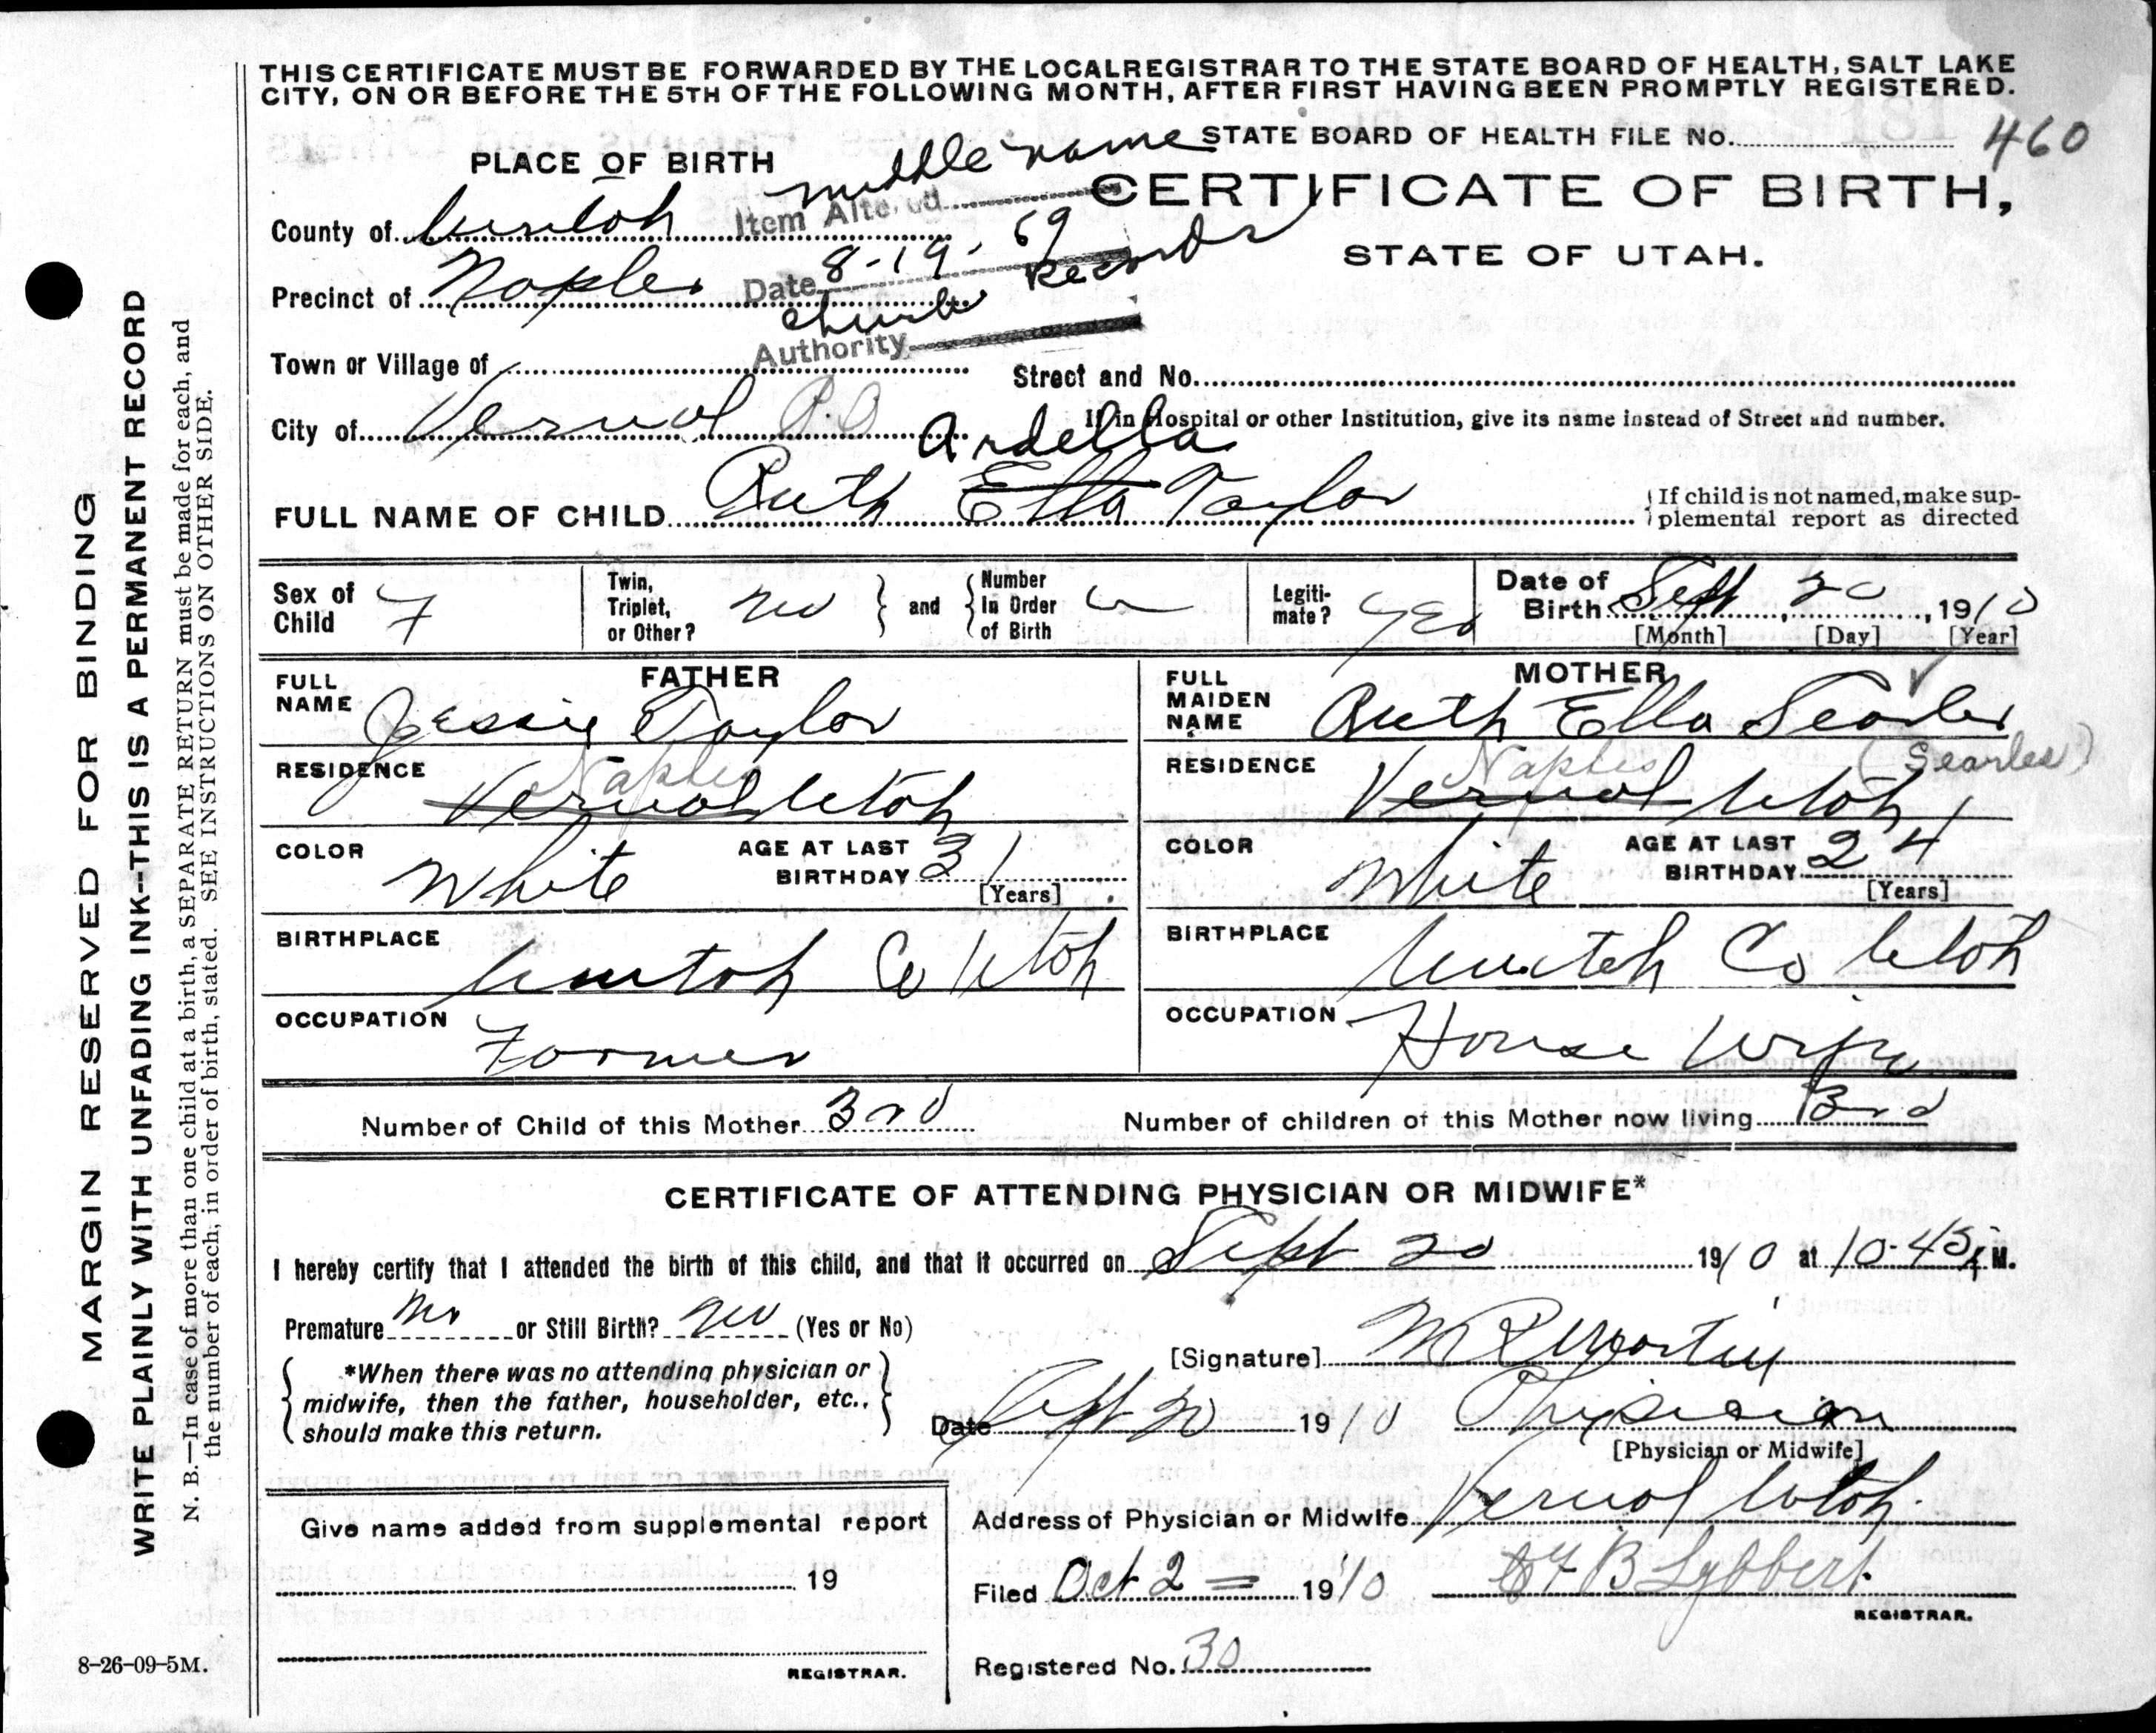 THIS CERTIFICATE MUST BE FORWARDED BY THE LOCAL REGISTRAR TO THE STATE BOARD OF HEALTH, SALT LAKE
CITY, ON OR BEFORE THE 5TH OF THE FOLLOWING MONTH, AFTER FIRST HAVING BEEN PROMPTLY REGISTERED.
STATE BOARD OF HEALTH FILE No. 460
PLACE OF BIRTH
CERTIFICATE OF BIRTH,
STATE OF UTAH.
Item Altered middle name
Date 8-19-69
Authority Church Records
County of Uintah
Precinct of Naples
Town or Village of
Street and No.
City of Vernal P.O
If in Hospital or other Institution, give its name instead of Street and number.
Ardella
FULL NAME OF CHILD Ruth Ella Taylor
If child is not named, make sup-
plemental report as directed
Sex of Child F
Twin, Triplet, or Other? no
and
Number in Order of Birth
Legiti-mate? yes
Date of Birth Sept 20, 1910
[Month] [Day] [Year]
FATHER
FULL NAME Jessie Taylor
RESIDENCE Naples
Vernal Utah
COLOR White
AGE AT LAST BIRTHDAY 31
[Years]
BIRTHPLACE Uintah Co Utah
OCCUPATION Farmer
MOTHER
FULL MAIDEN NAME Ruth Ella Searles
(Searles)
RESIDENCE Naples
Vernal Utah
COLOR White
AGE AT LAST BIRTHDAY 24
[Years]
BIRTHPLACE Uintah Co Utah
OCCUPATION House Wife
Number of Child of this Mother 3rd
Number of children of this Mother now living 3rd
CERTIFICATE OF ATTENDING PHYSICIAN OR MIDWIFE*
I hereby certify that I attended the birth of this child, and that it occurred on Sept 20 1910 at 10-45 M.
Premature no or Still Birth? no (Yes or No)
*When there was no attending physician or
midwife, then the father, householder, etc.,
should make this return.
[Signature]
Date Sept 20 1910
Physician
[Physician or Midwife]
Address of Physician or Midwife Vernal Utah.
Give name added from supplemental report
19
REGISTRAR.
Filed Oct 2 1910
B Lybbert
REGISTRAR.
Registered No. 30
8-26-09-5M.
MARGIN RESERVED FOR BINDING
WRITE PLAINLY WITH UNFADING INK--THIS IS A PERMANENT RECORD
N. B.—In case of more than one child at a birth, a SEPARATE RETURN must be made for each, and
the number of each, in order of birth, stated. SEE INSTRUCTIONS ON OTHER SIDE.